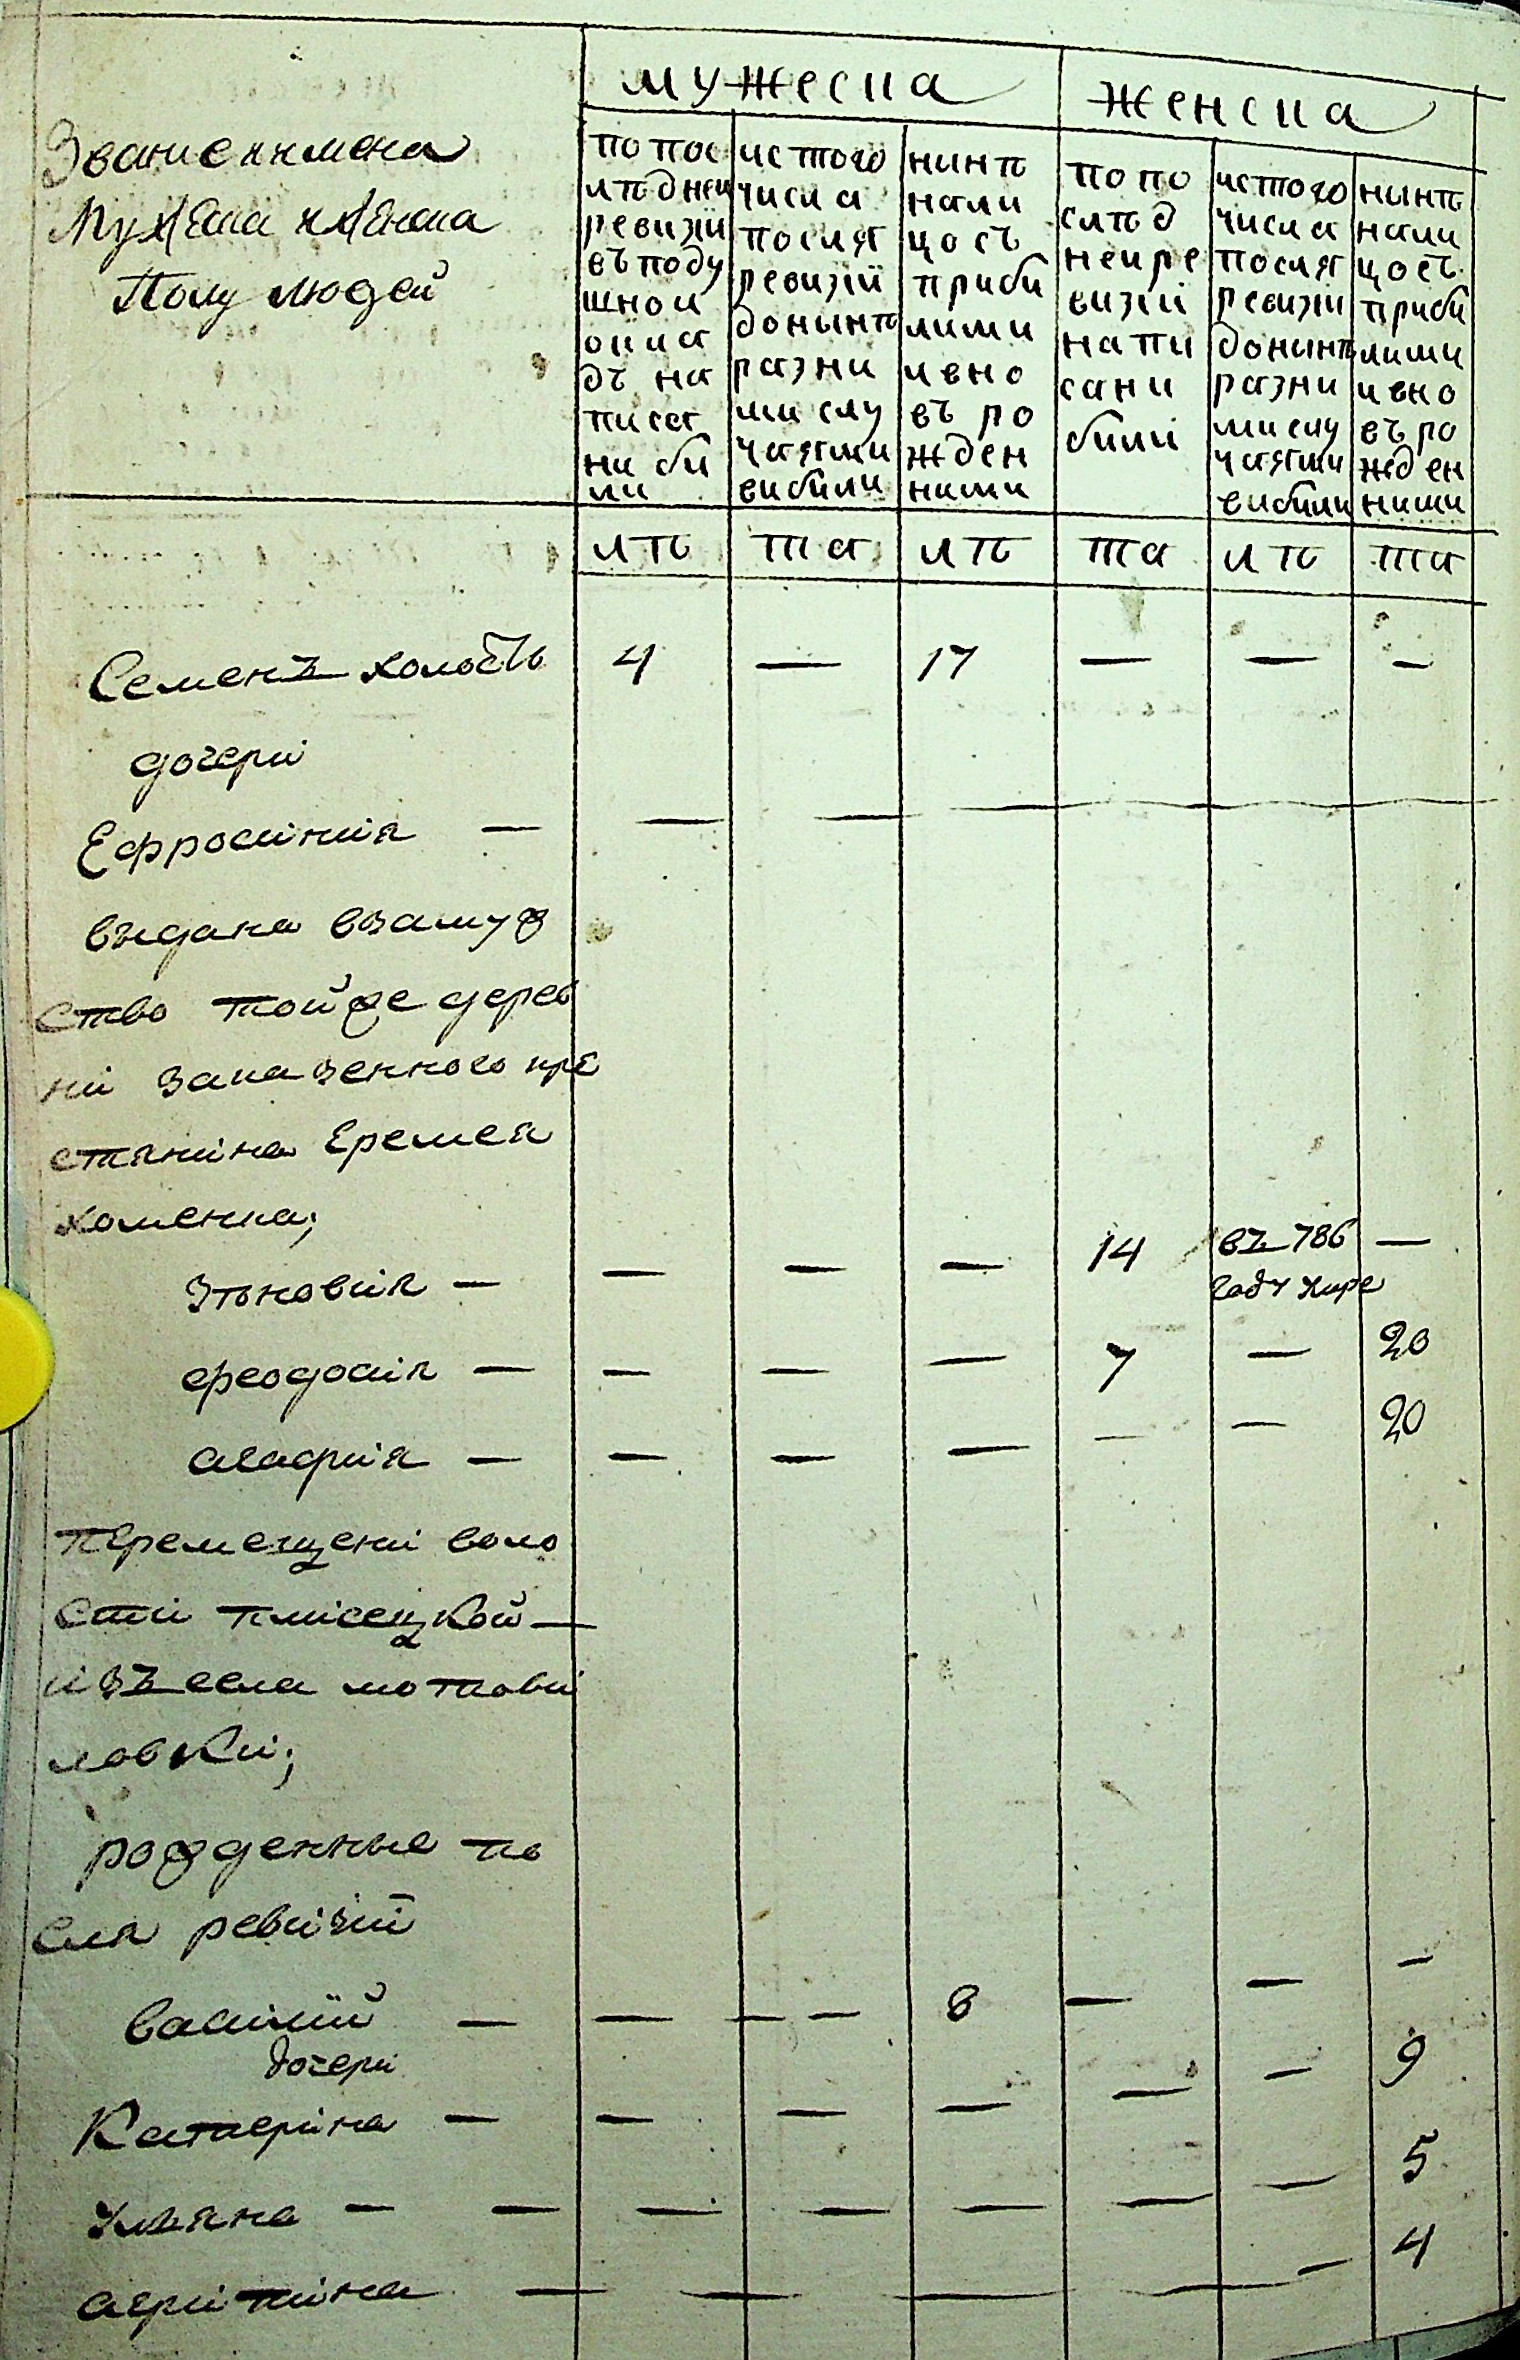 Званіе и имена
Мужеска и женска
Полу людей
мужеска
женска
по пос
лѣдней
ревизіи
въ поду
шной
окла
дъ на
писа
ни би
ли
ис того
числа
посля
ревизіи
до нынѣ
разни
ми слу
чаями
вибили
нинѣ
нали
цось
приби
лими
и вно
въ ро
жден
ними
по по
слѣд
ней ре
визіи
напи
сани
били
ис того
числа
посля
ревизіи
до нинѣ
разни
ми слу
чаями
вибили
нынѣ
нали
цось
приби
лими
и вно
въ ро
жден
ними
лѣ та лѣ та лѣ та
Семенъ холостъ 4 — 17 — — —
дочери
Ефросинія —
выдана взамуж
ство той же дерев
ни за казенного кре
стянина Еремея
хоменка;
Зѣновия — — — — 14 въ 786 —
году умре
феодосия — — — — 7 — 20
агафия — — — — — — 20
перемещени воло
сти плисецкой —
изъ села мотови
ловки;
рожденные по
сля ревизіи
василий — — — 8 — — —
дочери
Катерина — — — — — — 9
Уляна — — — — — — — 5
агрипина — — — — — 4